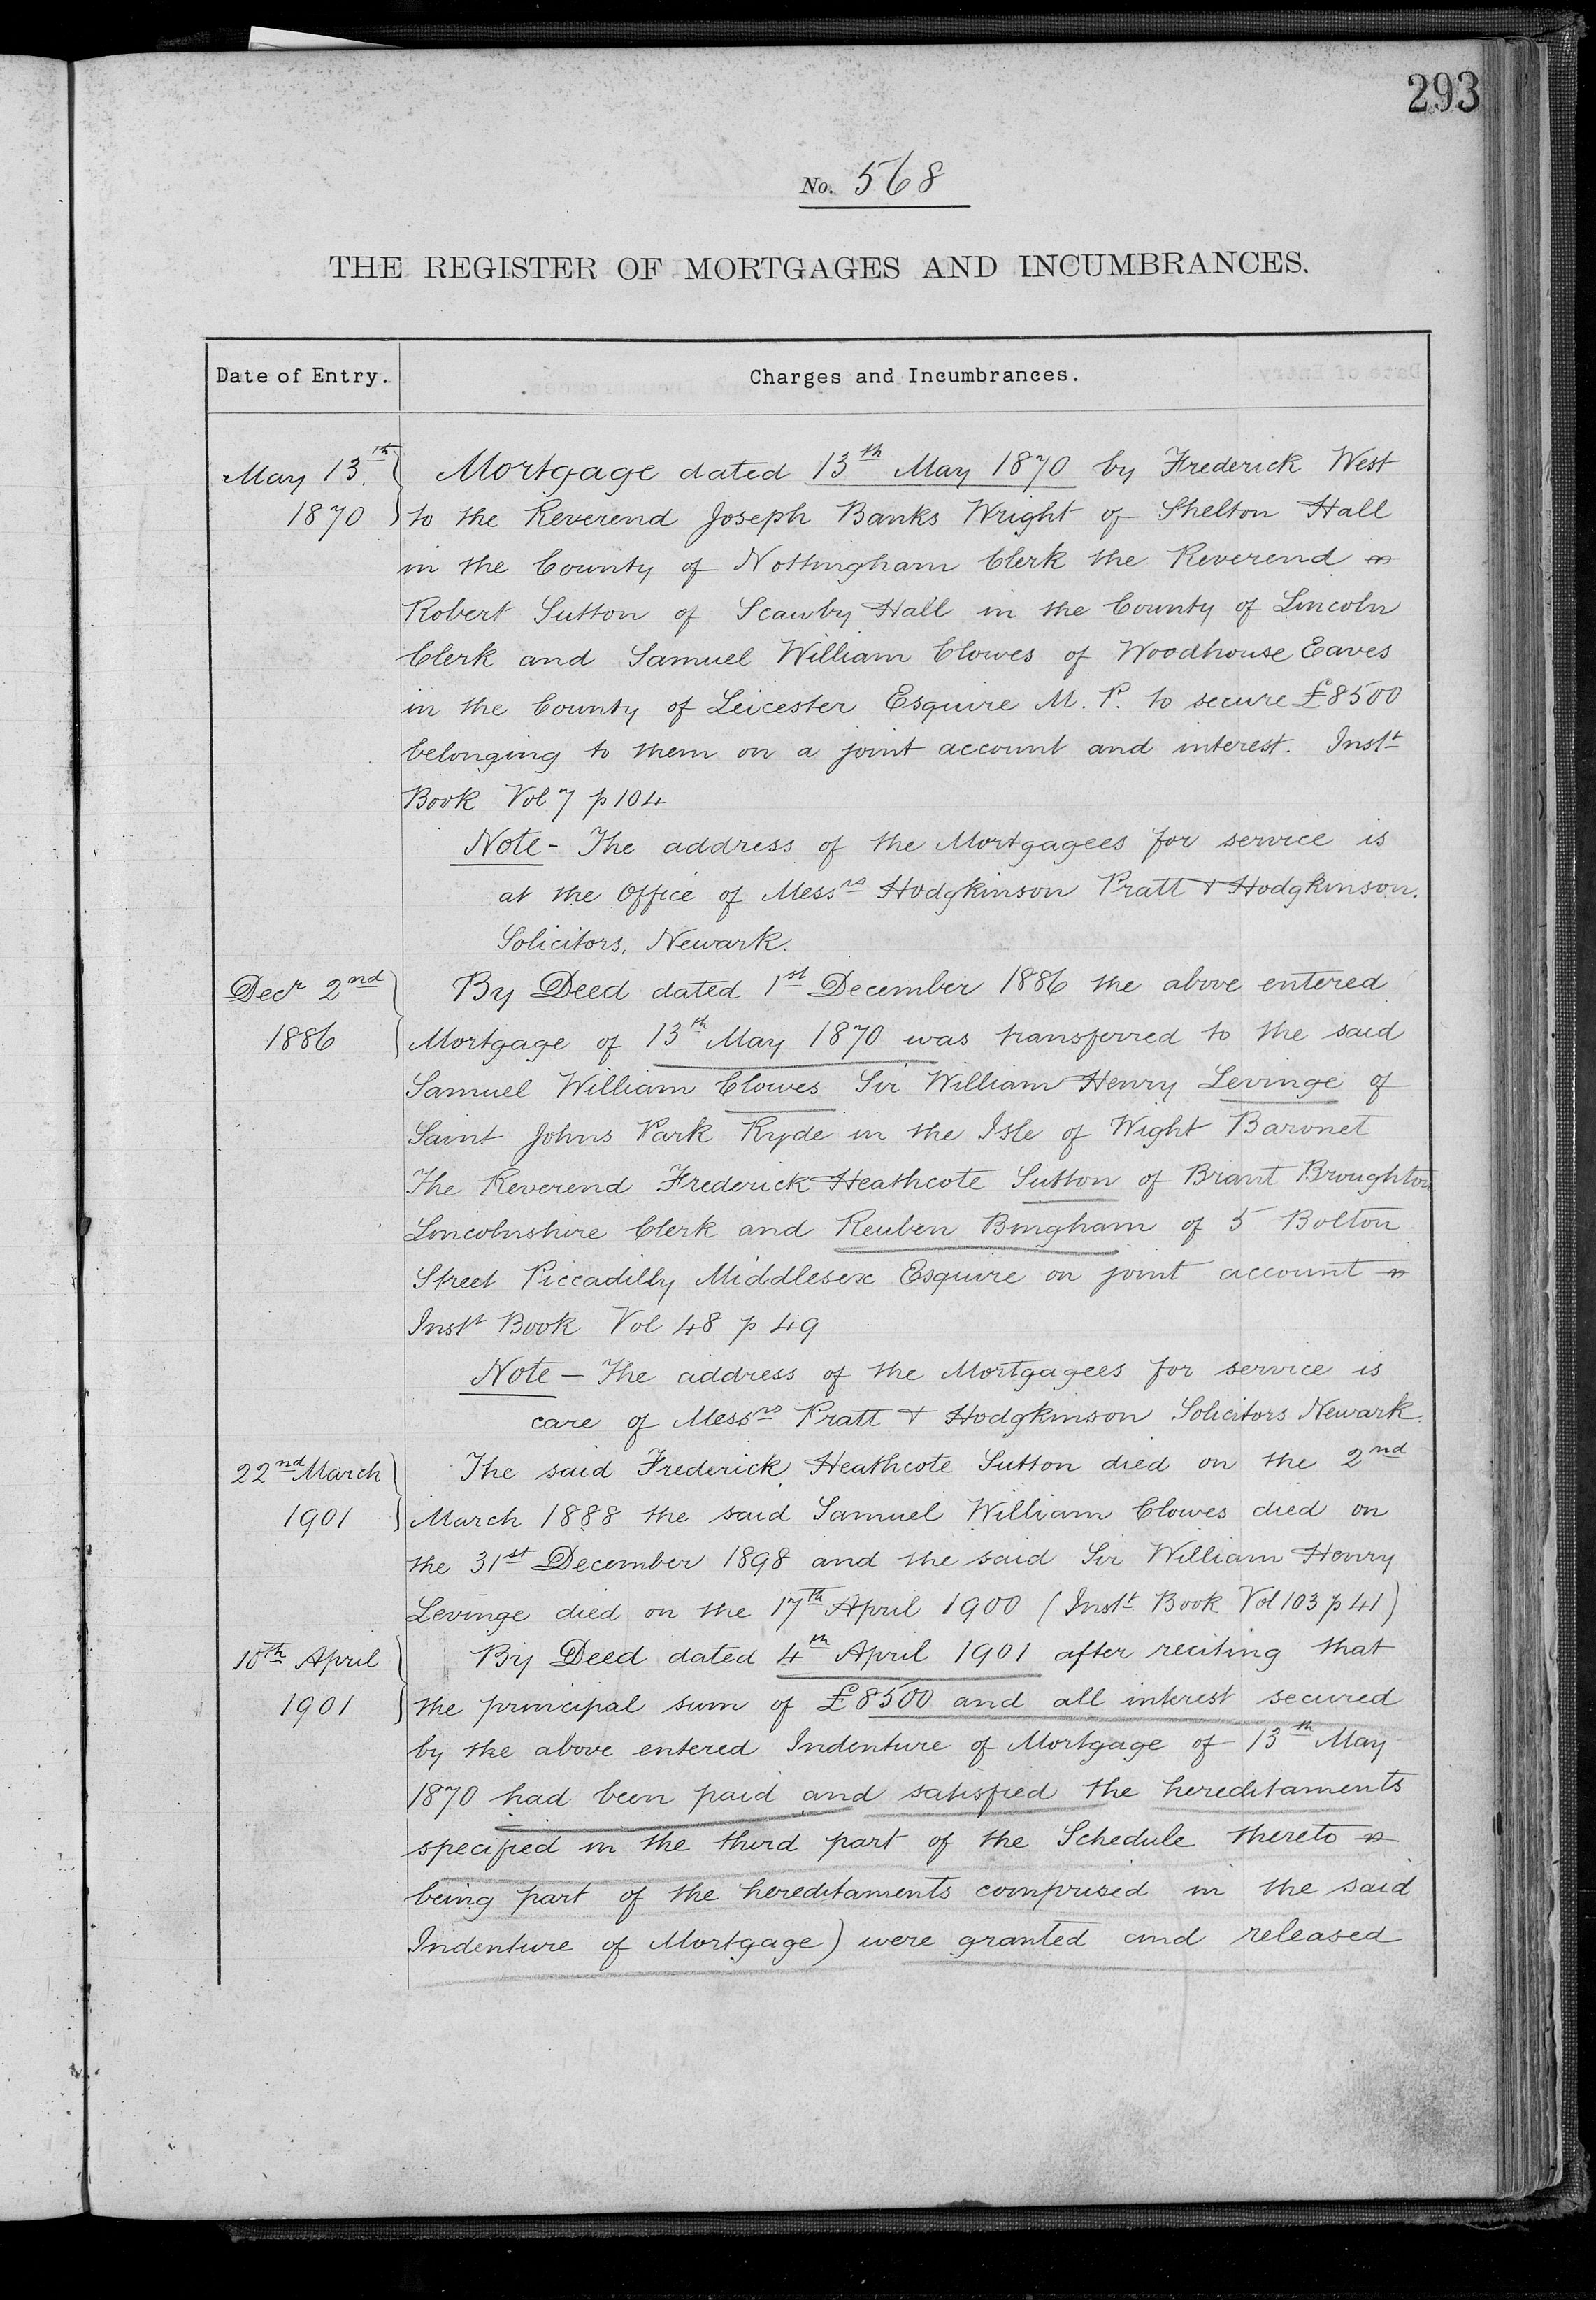 293
No. 568
THE REGISTER OF MORTGAGES AND INCUMBRANCES.
Date of Entry. Charges and Incumbrances.
May 13th Mortgage dated 13th May 1870 by Frederick West
1870 to the Reverend Joseph Banks Wright of Shelton Hall
in the County of Nottingham Clerk the Reverend
Robert Sutton of Scawby Hall in the County of Lincoln
Clerk and Samuel William Clowes of Woodhouse Eaves
in the County of Leicester Esquire M. P. to secure £8500
belonging to them on a joint account and interest. Instt
Book Vol 7 p 104
Note - The address of the Mortgagees for service is
at the Office of Messrs Hodgkinson Pratt & Hodgkinson.
Solicitors, Newark.
Decr 2nd By Deed dated 1st December 1886 the above entered
1886 Mortgage of 13th May 1870 was transferred to the said
Samuel William Clowes Sir William Henry Levinge of
Saint Johns Park Ryde in the Isle of Wight Baronet
The Reverend Frederick Heathcote Sutton of Brant Broughton
Lincolnshire Clerk and Reuben Bingham of 5 Bolton
Street Piccadilly Middlesex Esquire on joint account
Instt Book Vol 48 p 49
Note - The address of the Mortgagees for service is
care of Messrs Pratt & Hodgkinson Solicitors Newark.
22nd March The said Frederick Heathcote Sutton died on the 2nd
1901 March 1888 the said Samuel William Clowes died on
the 31st December 1898 and the said Sir William Henry
Levinge died on the 17th April 1900 (Instt Book Vol 103 p 41)
10th April By Deed dated 4th April 1901 after reciting that
1901 the principal sum of £8500 and all interest secured
by the above entered Indenture of Mortgage of 13th May
1870 had been paid and satisfied the hereditaments
specified in the third part of the Schedule thereto
being part of the hereditaments comprised in the said
Indenture of Mortgage) were granted and released